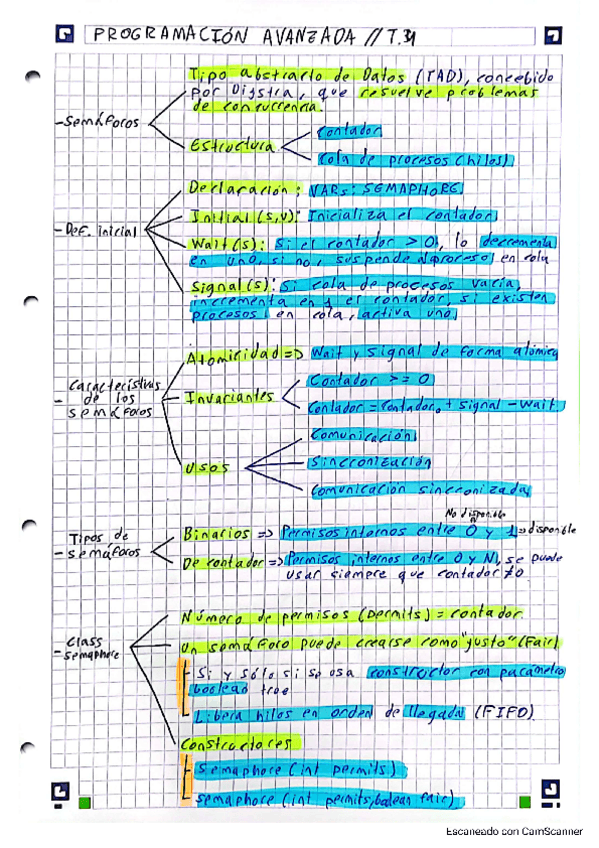 PROGRAMACIÓN AVANZADA // T.34
Tipo abstracto de Datos (TAD), concebido
por Dijstra, que resuelve problemas
de concurrencia.
- Semáforos
Estructura
Contador
Cola de procesos (hilos)
Declaración: VARs: SEMAPHORE
Initial (s,v): Inicializa el contador
- Def. inicial
Wait (s): Si el contador > 0, lo decrementa
en uno, si no, suspende al proceso en cola
Signal (s): Si cola de procesos vacía,
incrementa en 1 el contador, si existen
procesos en cola, activa uno.
Atomicidad => Wait y signal de forma atómica
- Características
de los
semáforos
Invariantes
Contador >= 0
Contador = Contador₀ + signal - Wait.
Usos
Comunicación
Sincronización
Comunicación sincronizada
- Tipos de
semáforos
No disponible
Binarios => Permisos internos entre 0 y 1 => disponible
De contador => Permisos internos entre 0 y N, se puede
usar siempre que contador ≠ 0
- Class
semaphore
Número de permisos (permits) = contador.
Un semáforo puede crearse como "justo" (Fair)
Si y sólo si se usa constructor con parámetro
boolean true
Libera hilos en orden de llegada (FIFO).
Constructores
Semaphore (int permits)
semaphore (int permits, bolean fair)
Escaneado con CamScanner